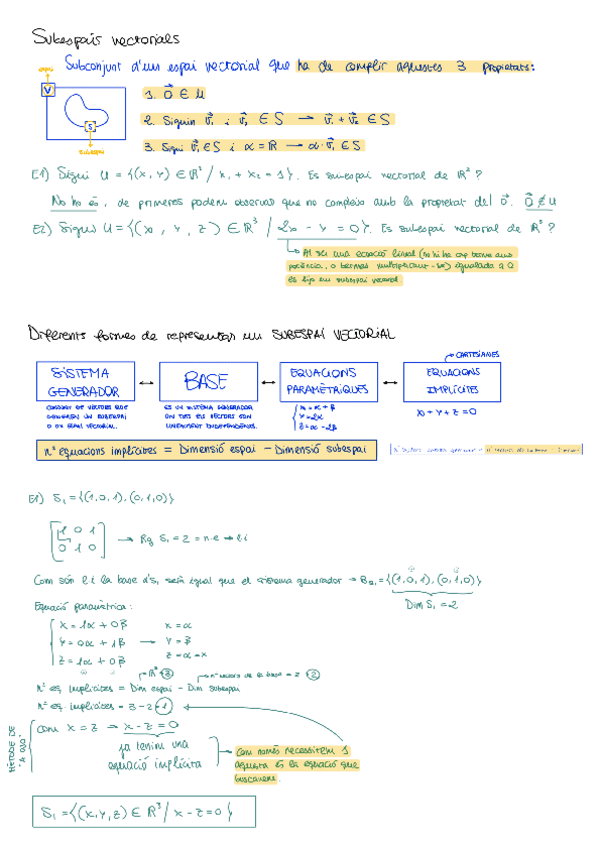 Subespais vectorials
Subconjunt d'un espai vectorial que ha de complir aquestes 3 propietats:
espai
V
S
subespai
1. 0⃗ ∈ U
2. Siguin v⃗₁ i v⃗₂ ∈ S → v⃗₁ + v⃗₂ ∈ S
3. Sigui v⃗₁ ∈ S i α = ℝ → α·v⃗₁ ∈ S
E1) Sigui U = {(x, y) ∈ ℝ² / x₁ + x₂ = 1}. És subespai vectorial de ℝ² ?
No ho és, de primeres podem observar que no compleix amb la propietat del 0⃗. 0⃗ ∉ U
E2) Sigui U = {(x, y, z) ∈ ℝ³ / 2x - y = 0}. És subespai vectorial de ℝ³ ?
Al ser una equació lineal (no hi ha cap terme amb
potència, o termes multiplicant-se) igualada a 0
és sijo un subespai vectorial
Diferents formes de representar un SUBESPAI VECTORIAL
SISTEMA GENERADOR ↔ BASE ↔ EQUACIONS PARAMÈTRIQUES ↔ EQUACIONS IMPLÍCITES
→ CARTESIANES
CONJUNT DE VECTORS QUE
GENEREN UN SUBESPAI
O UN ESPAI VECTORIAL.
ÉS UN SISTEMA GENERADOR
ON TOTS ELS VECTORS SÓN
LINEALMENT INDEPENDENTS.
x = α + β
y = 2α
z = α - 2β
x + y + z = 0
nº equacions implícites = Dimensió espai - Dimensió subespai
E1) S₁ = {(1,0,1), (0,1,0)}
[1 0 1
0 1 0] → Rg S₁ = 2 = n.e → l i
Com són l i la base d'S₁ serà igual que el sistema generador → B_S₁ = {(1,0,1), (0,1,0)}
Dim S₁ = 2
Equació paramètrica:
x = 1α + 0β x = α
y = 0α + 1β → y = β
z = 1α + 0β z = α = x
→ ℝ³ = 3 → nº vectors de la base = 2
nº eq implícites = Dim espai - Dim subespai
nº eq implícites = 3 - 2 = 1
MÈTODE DE
"A OJO"
Com x = z → x - z = 0
ja tenim una
equació implícita
Com només necessitem 1
aquesta és la equació que
buscavem.
S₁ = {(x,y,z) ∈ ℝ³ / x - z = 0}